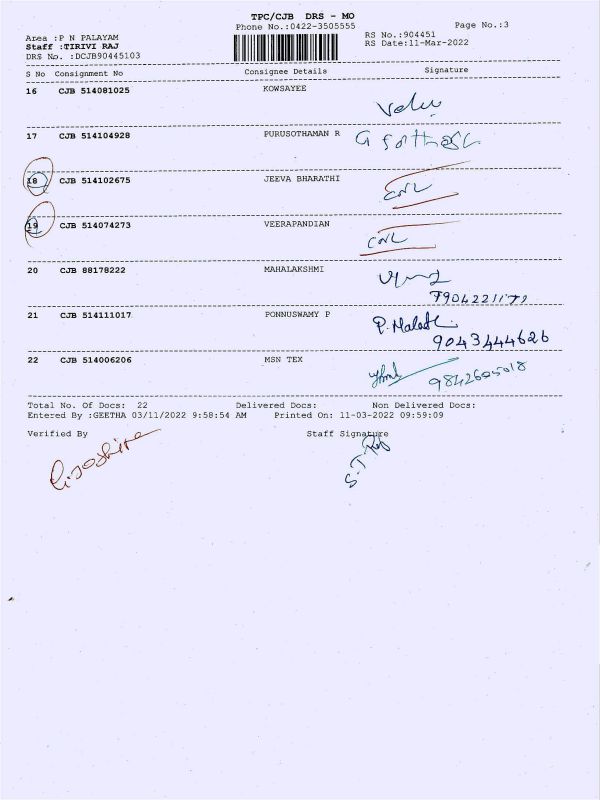 TPC/CJB DRS - MO
Phone No.:0422-3505555
Page No.:3
Area :P N PALAYAM
RS No.:904451
Staff :TIRIVI RAJ
RS Date:11-Mar-2022
DRS No. :DCJB90445103
S No Consignment No Consignee Details Signature
16 CJB 514081025 KOWSAYEE
17 CJB 514104928 PURUSOTHAMAN R
18 CJB 514102675 JEEVA BHARATHI
19 CJB 514074273 VEERAPANDIAN
20 CJB 88178222 MAHALAKSHMI
21 CJB 514111017 PONNUSWAMY P
9043444626
22 CJB 514006206 MSN TEX
Total No. Of Docs: 22 Delivered Docs: Non Delivered Docs:
Entered By :GEETHA 03/11/2022 9:58:54 AM Printed On: 11-03-2022 09:59:09
Verified By Staff Signature